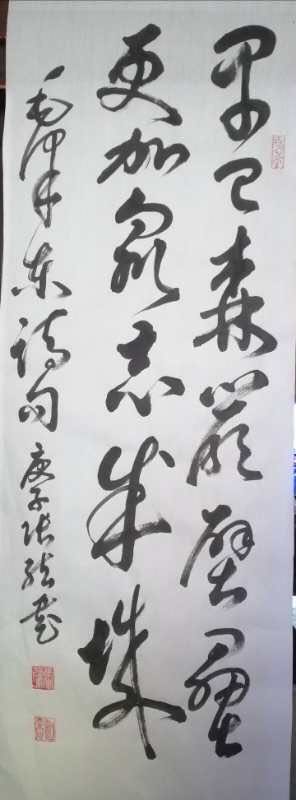 早已森严壁垒
更加众志成城
毛泽东诗句 庚子 张 书